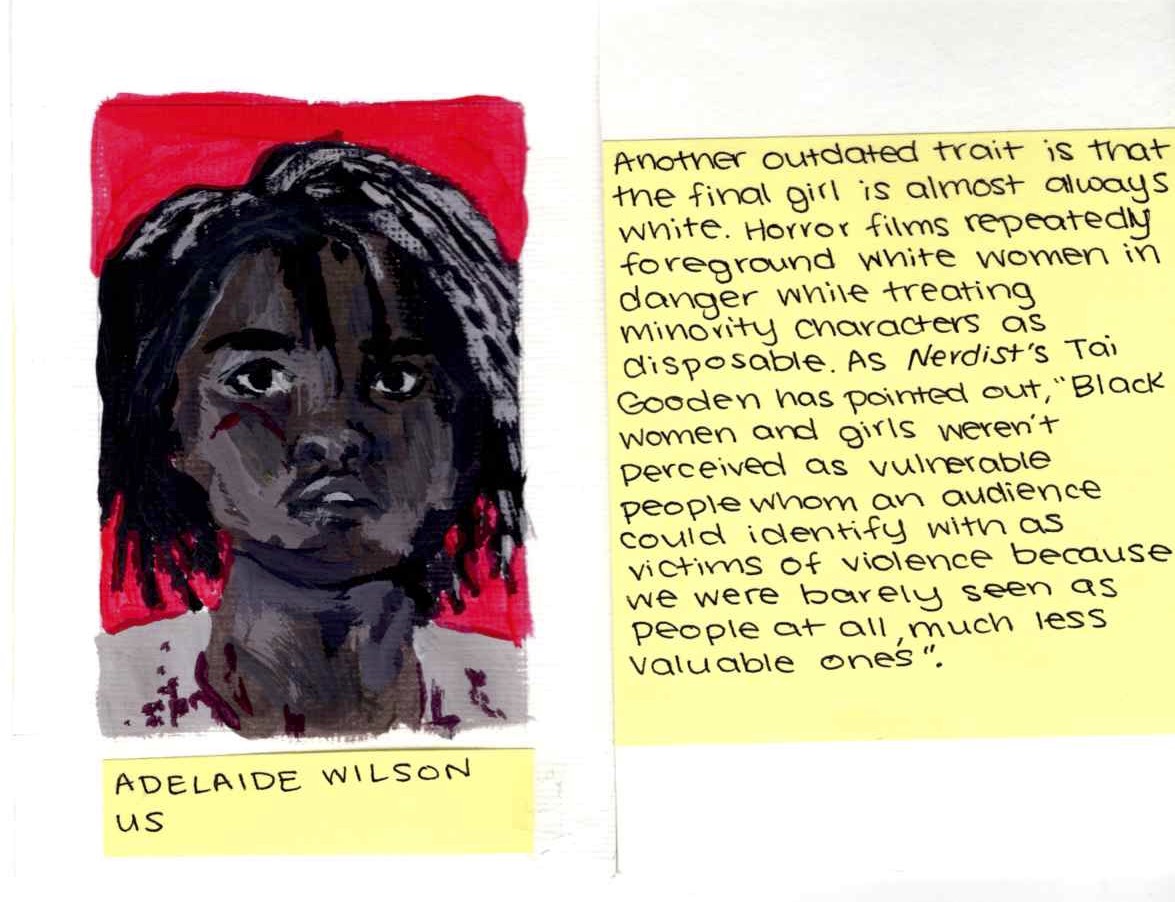 ADELAIDE WILSON
US
Another outdated trait is that
the final girl is almost always
white. Horror films repeatedly
foreground white women in
danger while treating
minority characters as
disposable. As Nerdist's Tai
Gooden has pointed out, "Black
women and girls weren't
perceived as vulnerable
people whom an audience
could identify with as
victims of violence because
we were barely seen as
people at all, much less
valuable ones".